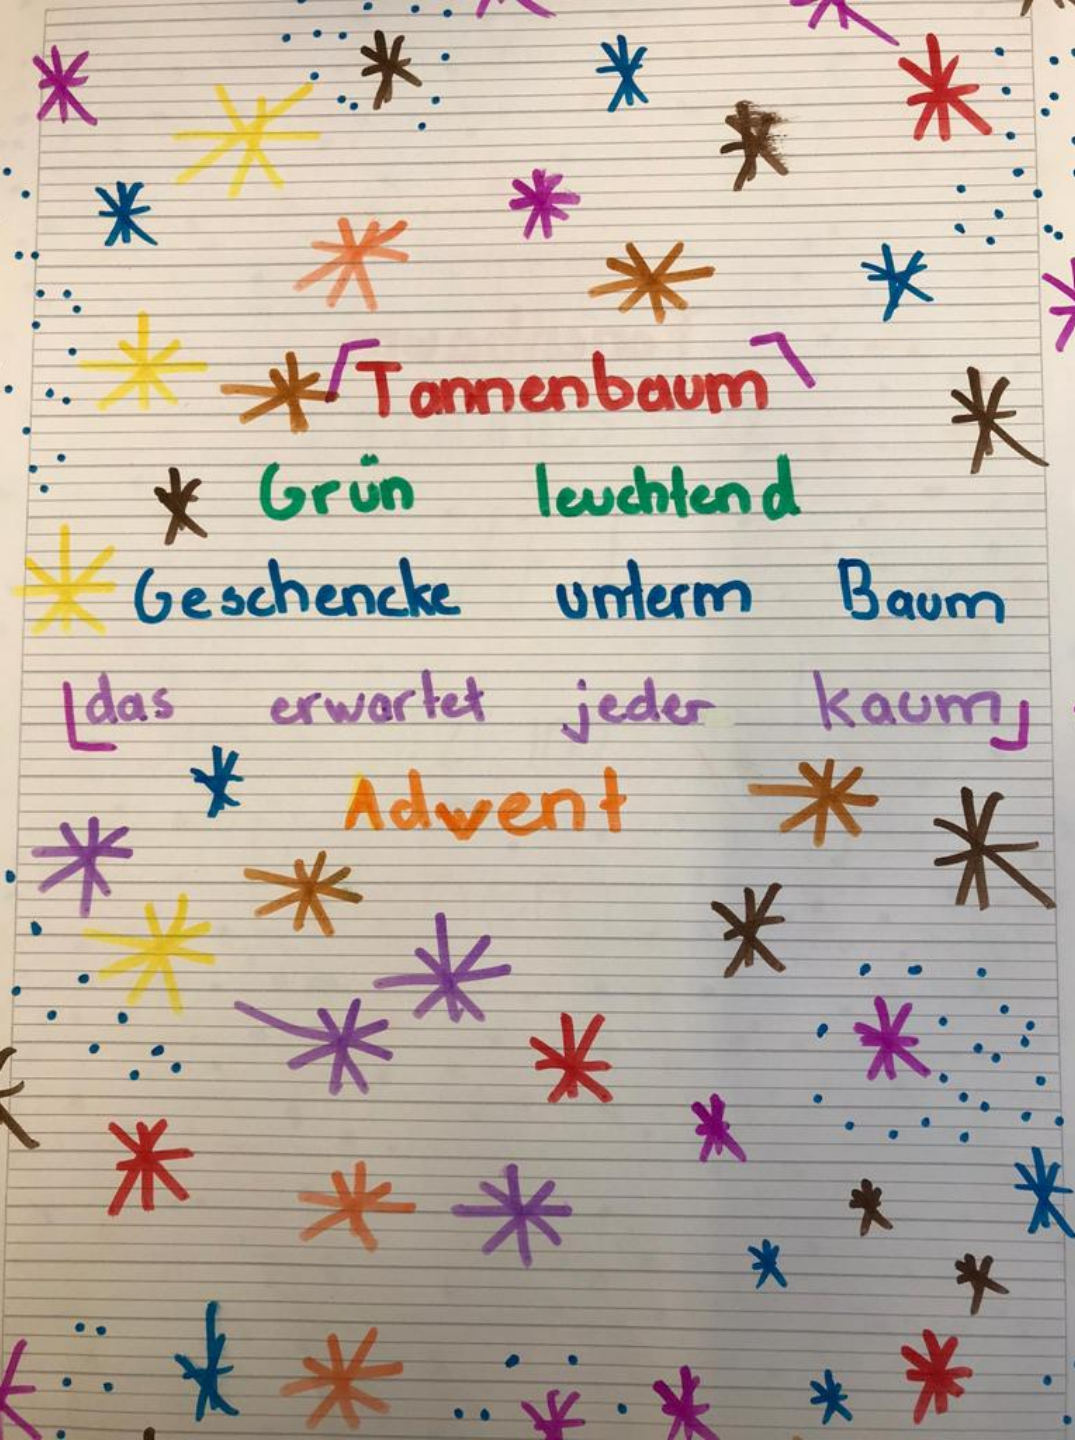 Tannenbaum
Grün leuchtend
Geschencke unterm Baum
das erwartet jeder kaum
Adwent